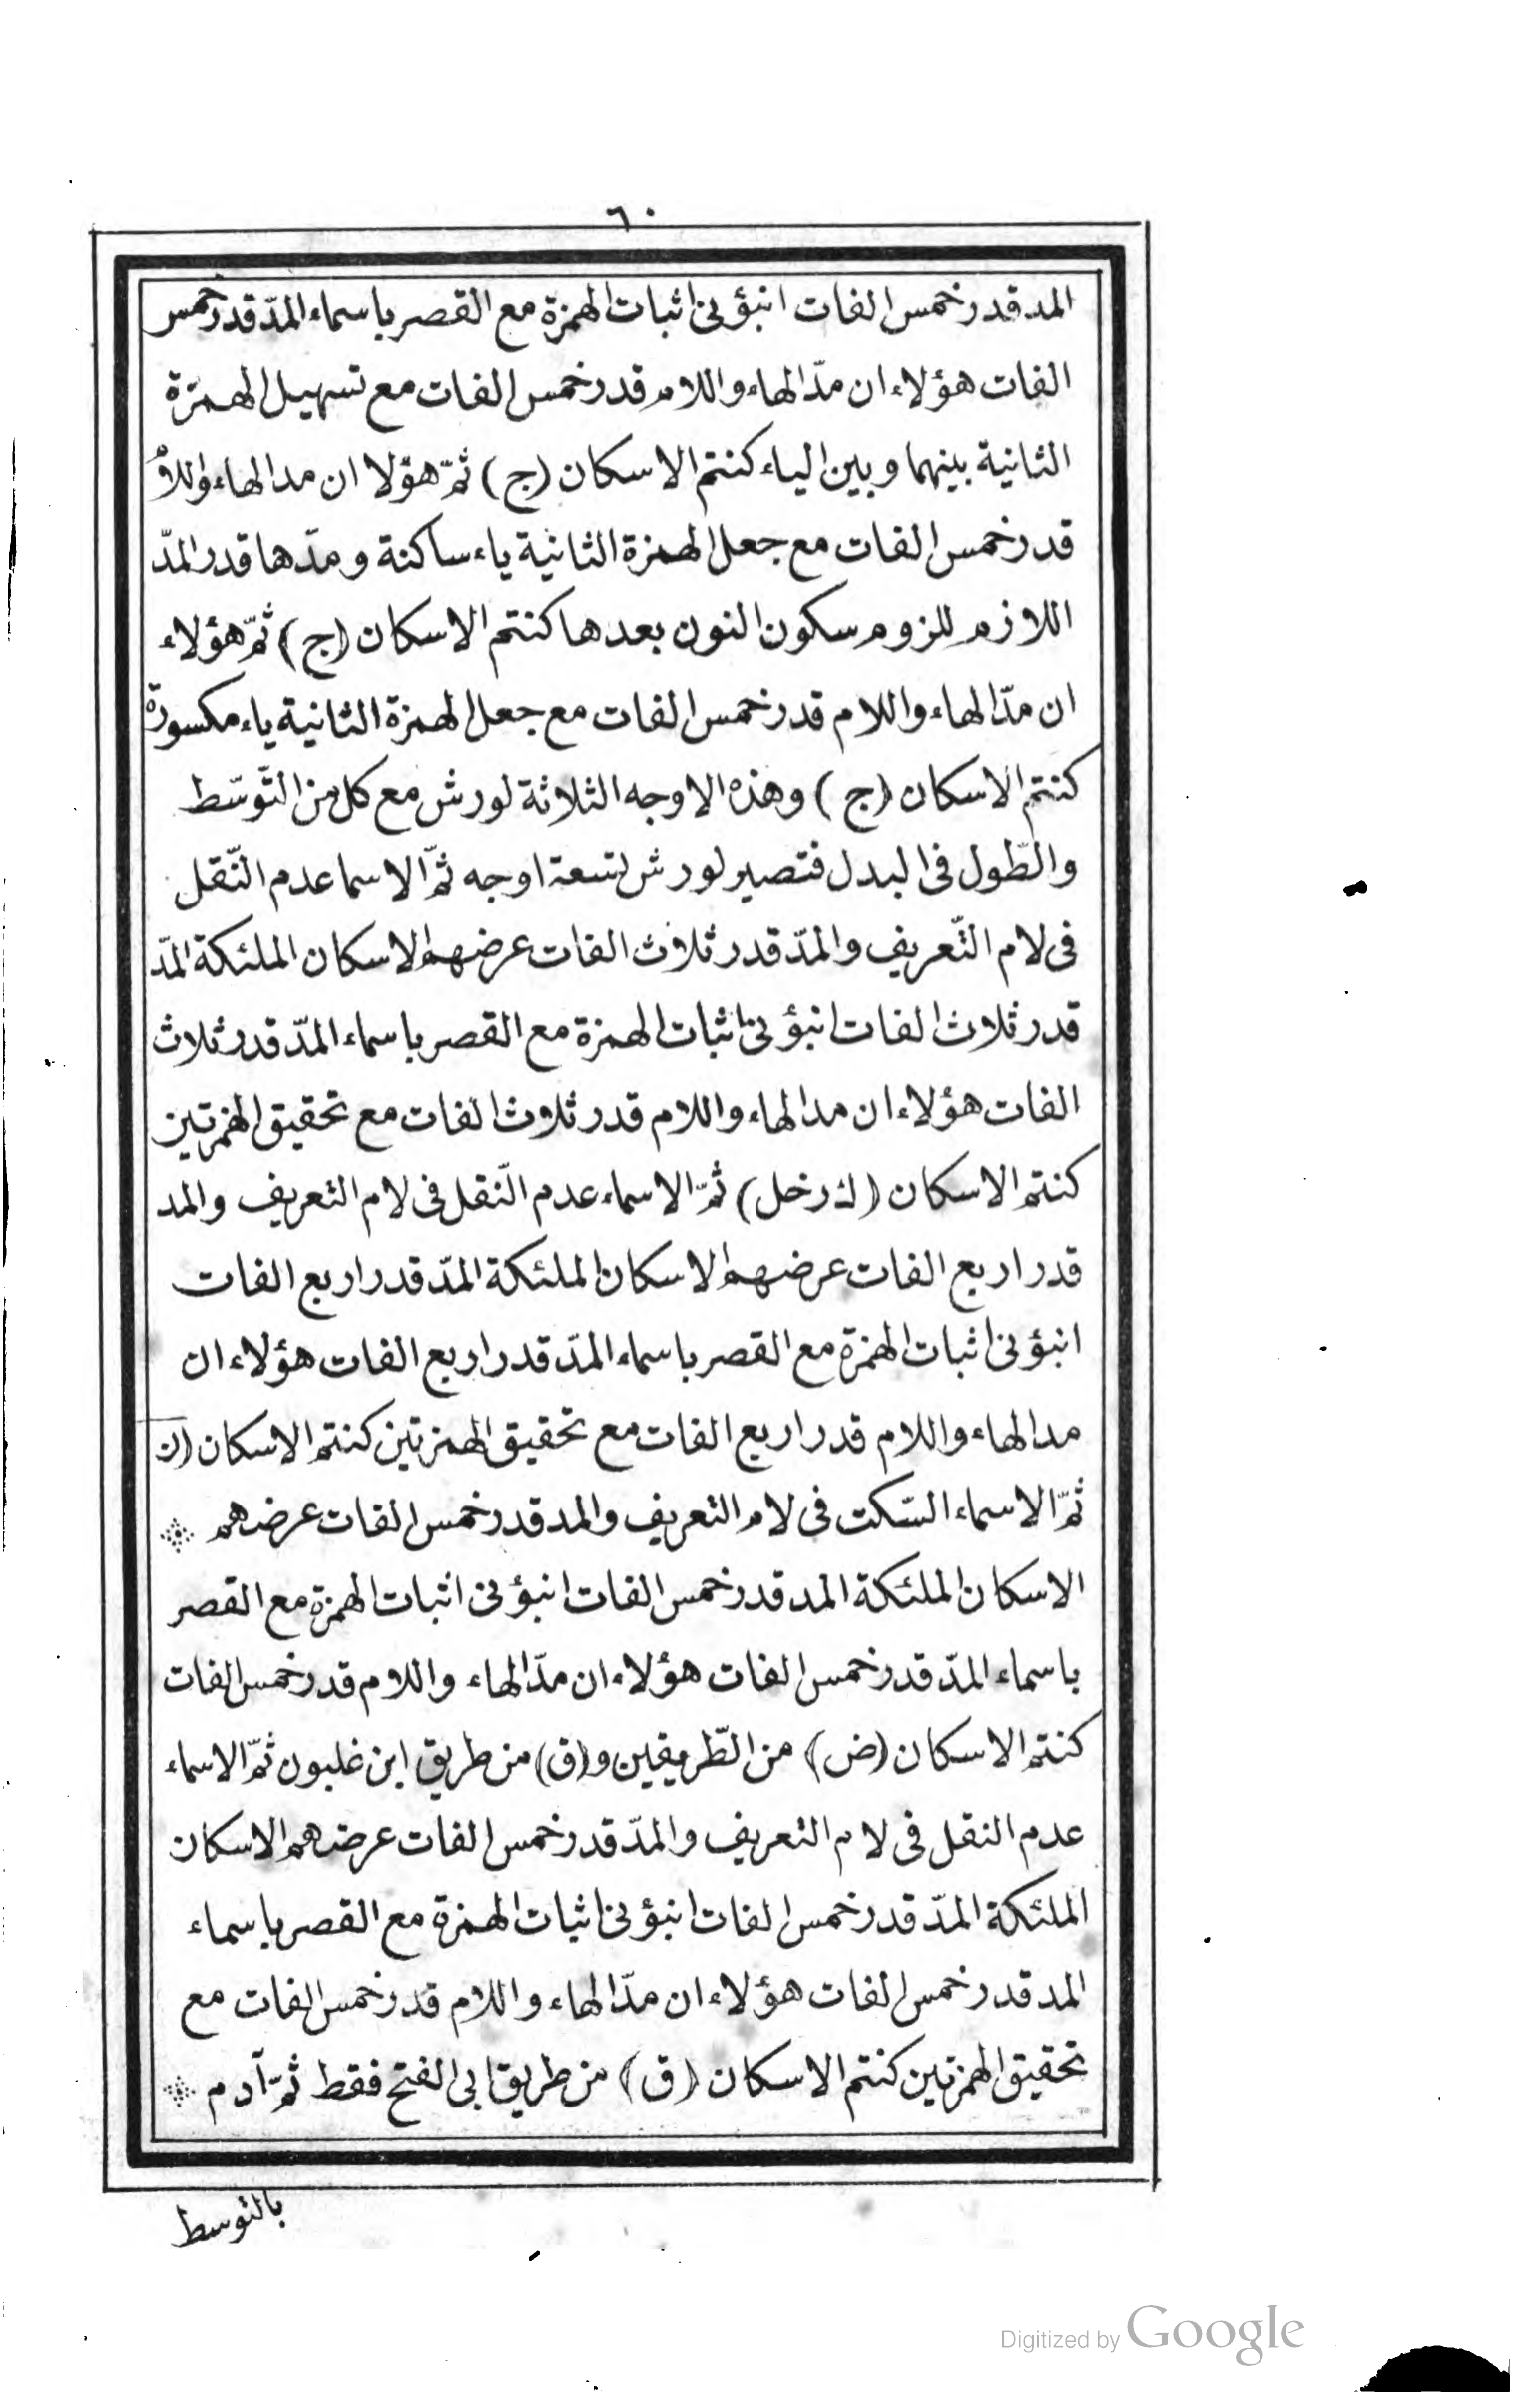 ٦٠
المد قدر خمس الفات انبؤنى اثبات الهمزة مع القصر باسماء المدّ قدر خمس
الفات هؤلاء ان مدّ الهاء واللام قدر خمس الفات مع تسهيل الهمزة
الثانية بينهما وبين الياء كنتم الاسكان (ج) ثمّ هؤلا ان مد الهاء واللام
قدر خمس الفات مع جعل الهمزة الثانية ياء ساكنة ومدّها قدر المدّ
اللازم للزوم سكون النون بعدها كنتم الاسكان (ج) ثمّ هؤلاء
ان مدّ الهاء واللام قدر خمس الفات مع جعل الهمزة الثانية ياء مكسورة
كنتم الاسكان (ج) وهذه الاوجه الثلاثة لورش مع كل من التّوسّط
والطّول فى البدل فتصير لورش تسعة اوجه ثمّ الاسما عدم النّقل
فى لام التّعريف والمدّ قدر ثلاث الفات عرضهم الاسكان الملئكة المدّ
قدر ثلاث الفات انبؤنى اثبات الهمزة مع القصر باسماء المدّ قدر ثلاث
الفات هؤلاء ان مد الهاء واللام قدر ثلاث الفات مع تحقيق الهمزتين
كنتم الاسكان (ك رخل) ثمّ الاسماء عدم النّقل فى لام التعريف والمد
قدر اربع الفات عرضهم الاسكان الملئكة المدّ قدر اربع الفات
انبؤنى اثبات الهمزة مع القصر باسماء المدّ قدر اربع الفات هؤلاء ان
مد الهاء واللام قدر اربع الفات مع تحقيق الهمزتين كنتم الاسكان (ن
ثمّ الاسماء السّكت فى لام التعريف والمد قدر خمس الفات عرضهم
الاسكان الملئكة المد قدر خمس الفات انبؤنى اثبات الهمزة مع القصر
باسماء المدّ قدر خمس الفات هؤلاء ان مدّ الهاء واللام قدر خمس الفات
كنتم الاسكان (ض) من الطّريقين و(ق) من طريق ابن غلبون ثمّ الاسماء
عدم النقل فى لام التعريف والمدّ قدر خمس الفات عرضهم الاسكان
الملئكة المدّ قدر خمس الفات انبؤنى اثبات الهمزة مع القصر باسماء
المد قدر خمس الفات هؤلاء ان مدّ الهاء واللام قدر خمس الفات مع
تحقيق الهمزتين كنتم الاسكان (ق) من طريق ابى الفتح فقط ثمّ آدم
بالتوسط
Digitized by Google